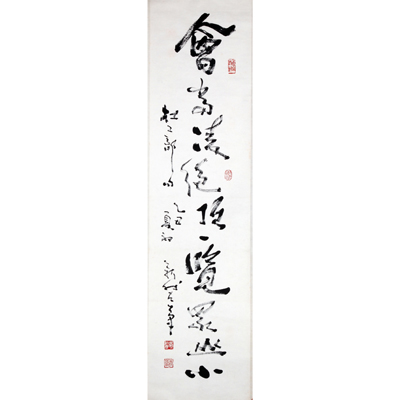 會當凌絕頂一覽眾山小
杜工部句
乙丑夏初